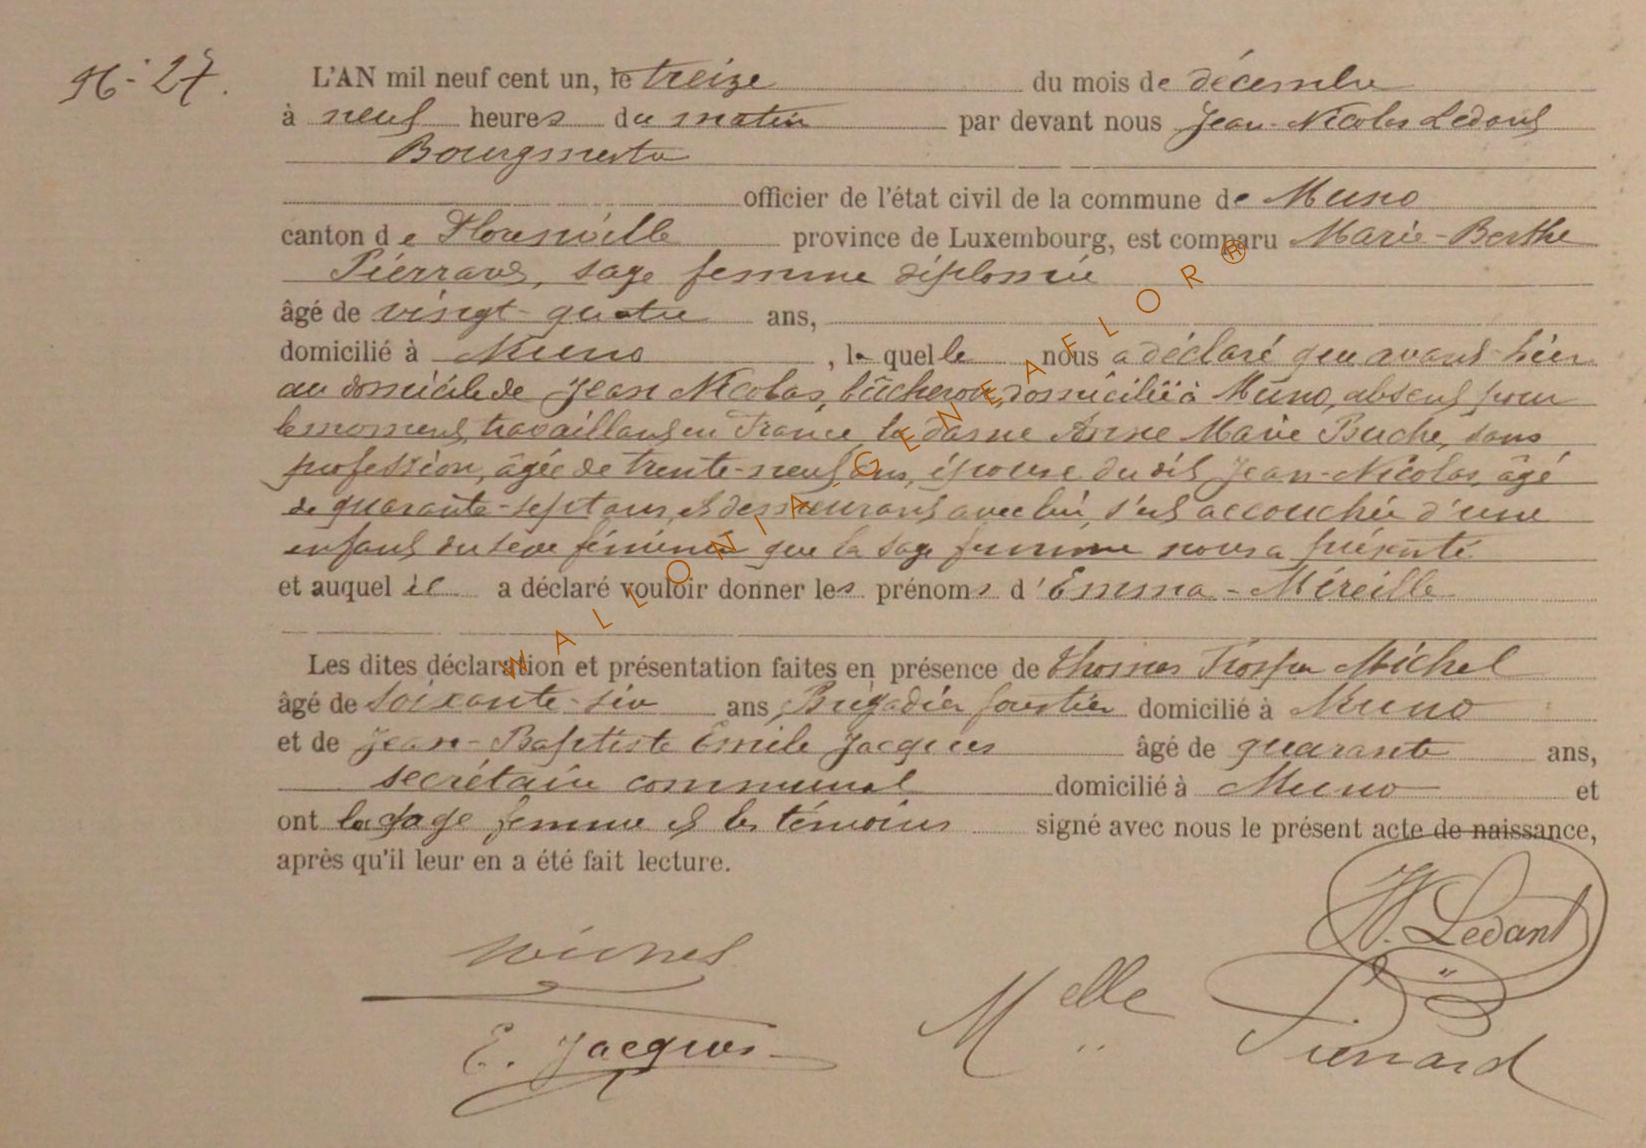 N° 27.
L'AN mil neuf cent un, le treize du mois de décembre
à neuf heures du matin par devant nous Jean-Nicolas Ledant
Bourgmestre
officier de l'état civil de la commune de Muno
canton de Florenville province de Luxembourg, est comparu Marie-Berthe
Pierrard, sage femme diplomée
âgé de vingt-quatre ans,
domicilié à Muno, laquelle nous a déclaré que avant-hier
au domicile de Jean Nicolas, bûcheron, domicilié à Muno, absent pour
le moment, travaillant en France, la dame Anne Marie Buche, sans
profession, âgée de trente-neuf ans, épouse du dit Jean-Nicolas, âgé
de quarante-sept ans, et demeurant avec lui, s'est accouchée d'une
enfant du sexe féminin que la sage femme nous a présenté
et auquel il a déclaré vouloir donner les prénoms d'Emma-Mireille
Les dites déclaration et présentation faites en présence de Thomas Prosper Michel
âgé de soixante-six ans, Brigadier forestier domicilié à Muno
et de Jean-Baptiste Emile Jacques âgé de quarante ans,
secrétaire communal domicilié à Muno et
ont la sage femme et les témoins signé avec nous le présent acte de naissance,
après qu'il leur en a été fait lecture.
N. Ledant
Melle Pierrard
E. Jacques
WALLONIA GENEAFLOR®